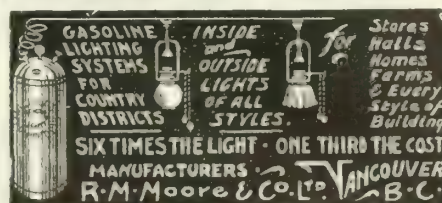 GASOLINE
LIGHTING
SYSTEMS
FOR
COUNTRY
DISTRICTS
INSIDE
and
OUTSIDE
LIGHTS
OF ALL
STYLES.
for
Stores
Halls
Homes
Farms
& Every
Style of
Building
SIX TIMES THE LIGHT - ONE THIRD THE COST
MANUFACTURERS
R.M. Moore & Co. LTD. VANCOUVER B.C.